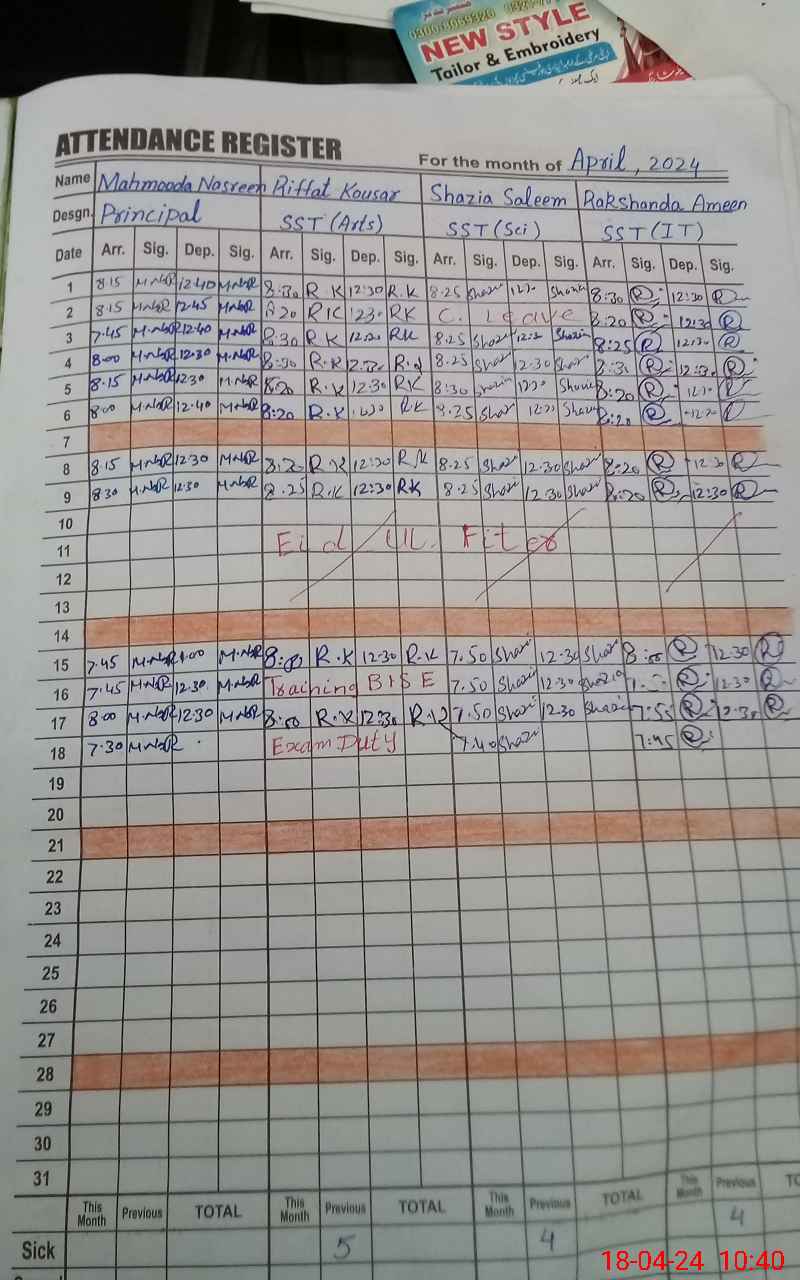 0300-6069320
NEW STYLE
Tailor & Embroidery
ATTENDANCE REGISTER
For the month of April, 2024
Name Mahmooda Nasreen Riffat Kousar Shazia Saleem Rakshanda Ameen
Desgn. Principal SST (Arts) SST (Sci) SST (IT)
Date Arr. Sig. Dep. Sig. Arr. Sig. Dep. Sig. Arr. Sig. Dep. Sig. Arr. Sig. Dep. Sig.
1 8.15 M.NSR 12.40 M.NSR 8:30 R.K 12:30 R.K 8.25 Shazi 8:30 R 12:30 R
2 8.15 M.NSR 12.45 M.NSR 8:20 RK 12:30 RK C. leave 8:20 R 12:30 R
3 7.45 M.NSR 12.40 M.NSR 8:30 RK RK 8.25 Shazi Shazia 8:25 R 12:30 R
4 8.00 M.NSR 12.30 M.NSR R.K 8.25 Shazi 12.30 Shazi R R
5 8.15 M.NSR 12.30 M.NSR 8:20 R.K 12:30 RK 8:30 Shazia 8:20 R
6 8.00 M.NSR 12.40 M.NSR 8:20 R.K RK 8.25 Shazi 8:20 R
7
8 8.15 M.NSR 12.30 M.NSR 8:20 R.K 12:30 R.K 8.25 Shazi 12.30 Shazi 8:20 R 12:30 R
9 8.30 M.NSR 12.30 M.NSR 8.25 R.K 12:30 RK 8.25 Shazi 12.30 Shazi 8:20 R 12:30 R
10
11 Eid UL. Fiter
12
13
14
15 7.45 M.NSR 1.00 M.NSR 8:00 R.K 12.30 R.K 7.50 Shazi 12.30 Shazi R 12.30 R
16 7.45 M.NSR 12.30 M.NSR Training BISE 7.50 Shazi 12.30 Shazia R 12.30 R
17 8.00 M.NSR 12.30 M.NSR R.K 12:30 R.K 7.50 Shazi 12.30 Shazia 7:55 R 12.30 R
18 7.30 M.NSR Exam Duty 7.40 Shazi 7:45 R
19
20
21
22
23
24
25
26
27
28
29
30
31
This Month Previous TOTAL This Month Previous TOTAL This Month Previous TOTAL This Month Previous
Sick 5 4 4
18-04-24 10:40